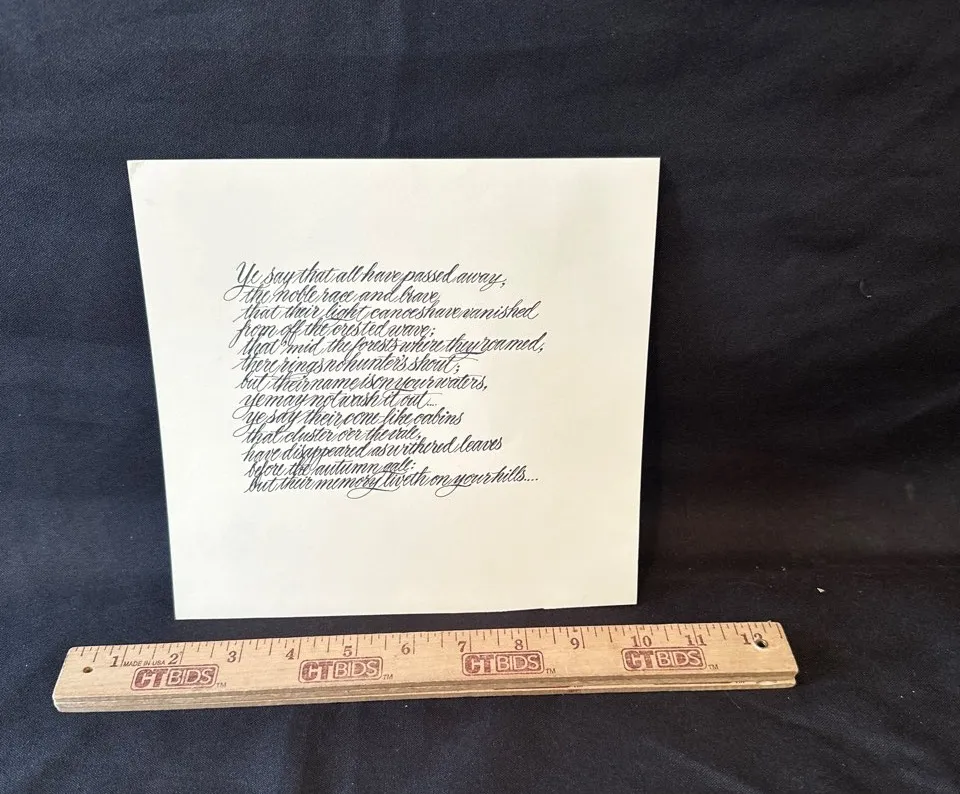 Ye say that all have passed away,
the noble race and brave
that their light canoes have vanished
from off the crested wave;
that 'mid the forests where they roamed,
there rings no hunter's shout;
but their name is on your waters,
ye may not wash it out....
ye say their cone-like cabins
that cluster o'er the vale,
have disappeared as withered leaves
before the autumn gale:
but their memory liveth on your hills....
1 2 3 4 5 6 7 8 9 10 11 12
MADE IN USA
CTBIDS™ CTBIDS™ CTBIDS™ CTBIDS™